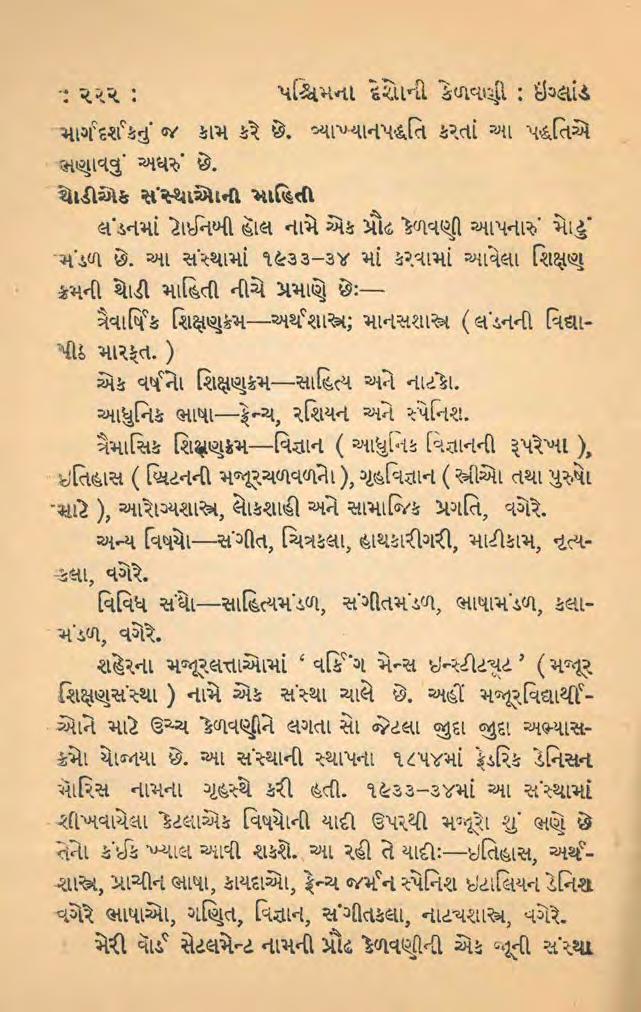 : ૨૨૨ : પશ્ચિમના દેશોની કેળવણી : ઇંગ્લાંડ
માર્ગદર્શકનું જ કામ કરે છે. વ્યાખ્યાનપદ્ધતિ કરતાં આ પદ્ધતિએ
ભણાવવું અઘરું છે.
થોડીએક સંસ્થાઓની માહિતી
લંડનમાં ટોઈનબી હૉલ નામે એક પ્રૌઢ કેળવણી આપનારું મોટું
મંડળ છે. આ સંસ્થામાં ૧૯૩૩–૩૪ માં કરવામાં આવેલા શિક્ષણ
ક્રમની થોડી માહિતી નીચે પ્રમાણે છેઃ—
ત્રૈવાર્ષિક શિક્ષણક્રમ—અર્થશાસ્ત્ર; માનસશાસ્ત્ર ( લંડનની વિદ્યા-
પીઠ મારફત. )
એક વર્ષનો શિક્ષણક્રમ—સાહિત્ય અને નાટકો.
આધુનિક ભાષા—ફ્રેન્ચ, રશિયન અને સ્પેનિશ.
ત્રૈમાસિક શિક્ષણક્રમ—વિજ્ઞાન ( આધુનિક વિજ્ઞાનની રૂપરેખા ),
ઇતિહાસ ( બ્રિટનની મજૂરચળવળનો ), ગૃહવિજ્ઞાન ( સ્ત્રીઓ તથા પુરુષો
માટે ), આરોગ્યશાસ્ત્ર, લોકશાહી અને સામાજિક પ્રગતિ, વગેરે.
અન્ય વિષયો—સંગીત, ચિત્રકલા, હાથકારીગરી, માટીકામ, નૃત્ય-
કલા, વગેરે.
વિવિધ સંઘો—સાહિત્યમંડળ, સંગીતમંડળ, ભાષામંડળ, કલા-
મંડળ, વગેરે.
શહેરના મજૂરલત્તાઓમાં ‘ વર્કિંગ મેન્સ ઇન્સ્ટીટ્યૂટ ’ ( મજૂર
શિક્ષણસંસ્થા ) નામે એક સંસ્થા ચાલે છે. અહીં મજૂરવિદ્યાર્થી-
ઓને માટે ઉચ્ચ કેળવણીને લગતા સો જેટલા જુદા જુદા અભ્યાસ-
ક્રમો યોજાયા છે. આ સંસ્થાની સ્થાપના ૧૮૫૪માં ફ્રેડરિક ડેનિસન
મૉરિસ નામના ગૃહસ્થે કરી હતી. ૧૯૩૩–૩૪માં આ સંસ્થામાં
શીખવાયેલા કેટલાએક વિષયોની યાદી ઉપરથી મજૂરો શું ભણે છે
તેનો કંઈક ખ્યાલ આવી શકશે. આ રહી તે યાદીઃ—ઇતિહાસ, અર્થ-
શાસ્ત્ર, પ્રાચીન ભાષા, કાયદાઓ, ફ્રેન્ચ જર્મન સ્પેનિશ ઇટાલિયન ડેનિશ
વગેરે ભાષાઓ, ગણિત, વિજ્ઞાન, સંગીતકલા, નાટ્યશાસ્ત્ર, વગેરે.
મેરી વૉર્ડ સેટલમેન્ટ નામની પ્રૌઢ કેળવણીની એક જૂની સંસ્થા